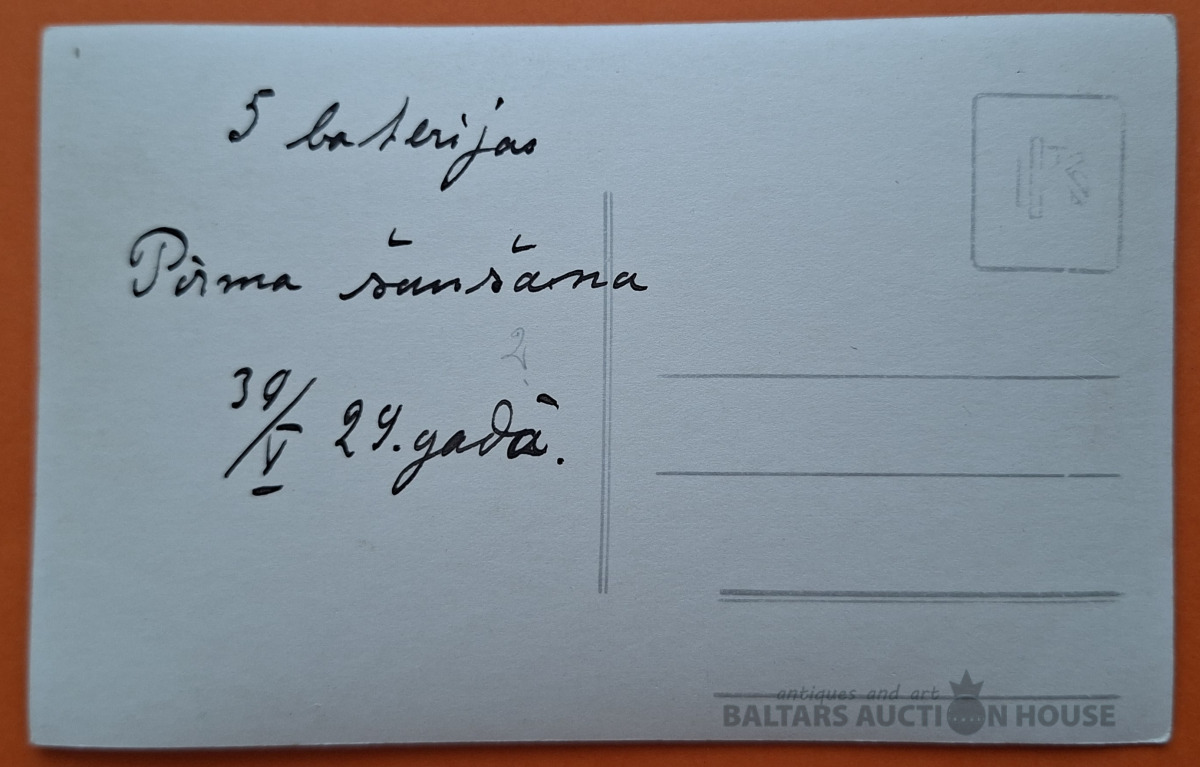 5 baterijas
Pirma šaušana
2.
30/V 29. gadā.
antiques and art
BALTARS AUCTION HOUSE